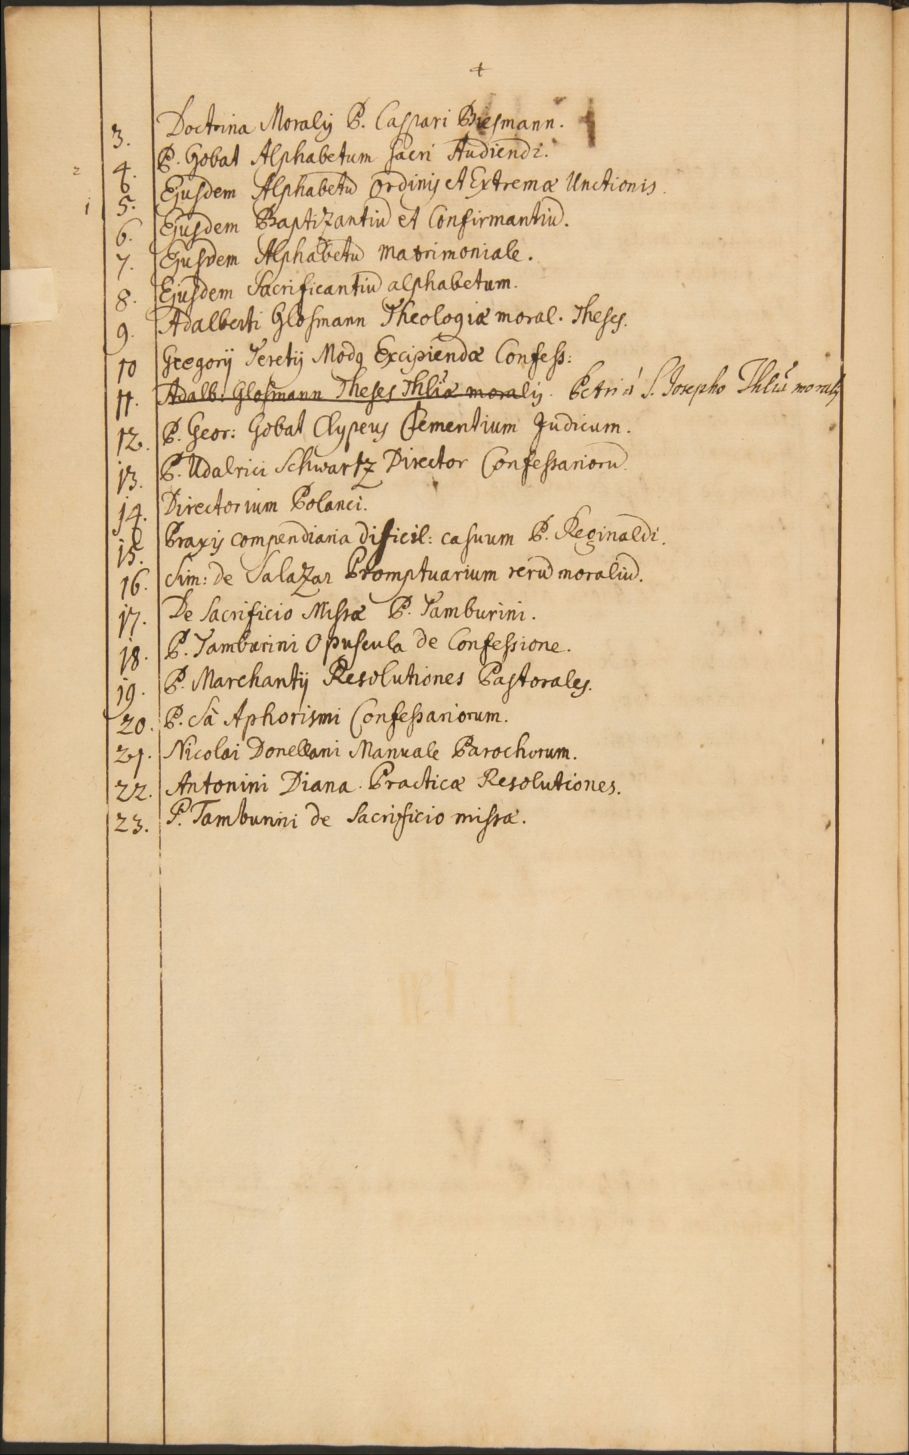 +
3. Doctrina Moralis P. Caspari Biesmann.
2 4. P. Gobat Alphabetum sacri Audiendi.
1 5. Ejusdem Alphabetū ordinis et Extremæ Unctionis.
6. Ejusdem Baptizantiū et Confirmantiū.
7. Ejusdem Alphabetū Matrimoniale.
8. Ejusdem Sacrificantiū alphabetum.
9. Adalberti Glosmann Theologiæ moral. Theses.
10 Gregorij Teretij Modq Excipiendæ Confess:
11. Adalb: Glosmann Theses Thliæ moralis. Petri à S. Josepho Thliæ moralis
12. P. Geor: Gobat Clypeus Clementium Judicum.
13. P. Udalrici Schwartz Director Confessariorū
14. Directorium Polanci.
15. Praxis compendiaria dificil: casuum P. Reginaldi.
16. Sim: de Salazar Promptuarium rerū moraliū.
17. De Sacrificio Missæ P. Tamburini.
18. P. Tamburini Opuscula de Confessione.
19. P. Marchantij Resolutiones Pastorales.
20. P. Sà Aphorismi Confessariorum.
21. Nicolai Donellani Manuale Parochorum.
22. Antonini Diana Practicæ Resolutiones.
23. P. Tamburini de Sacrificio missæ.